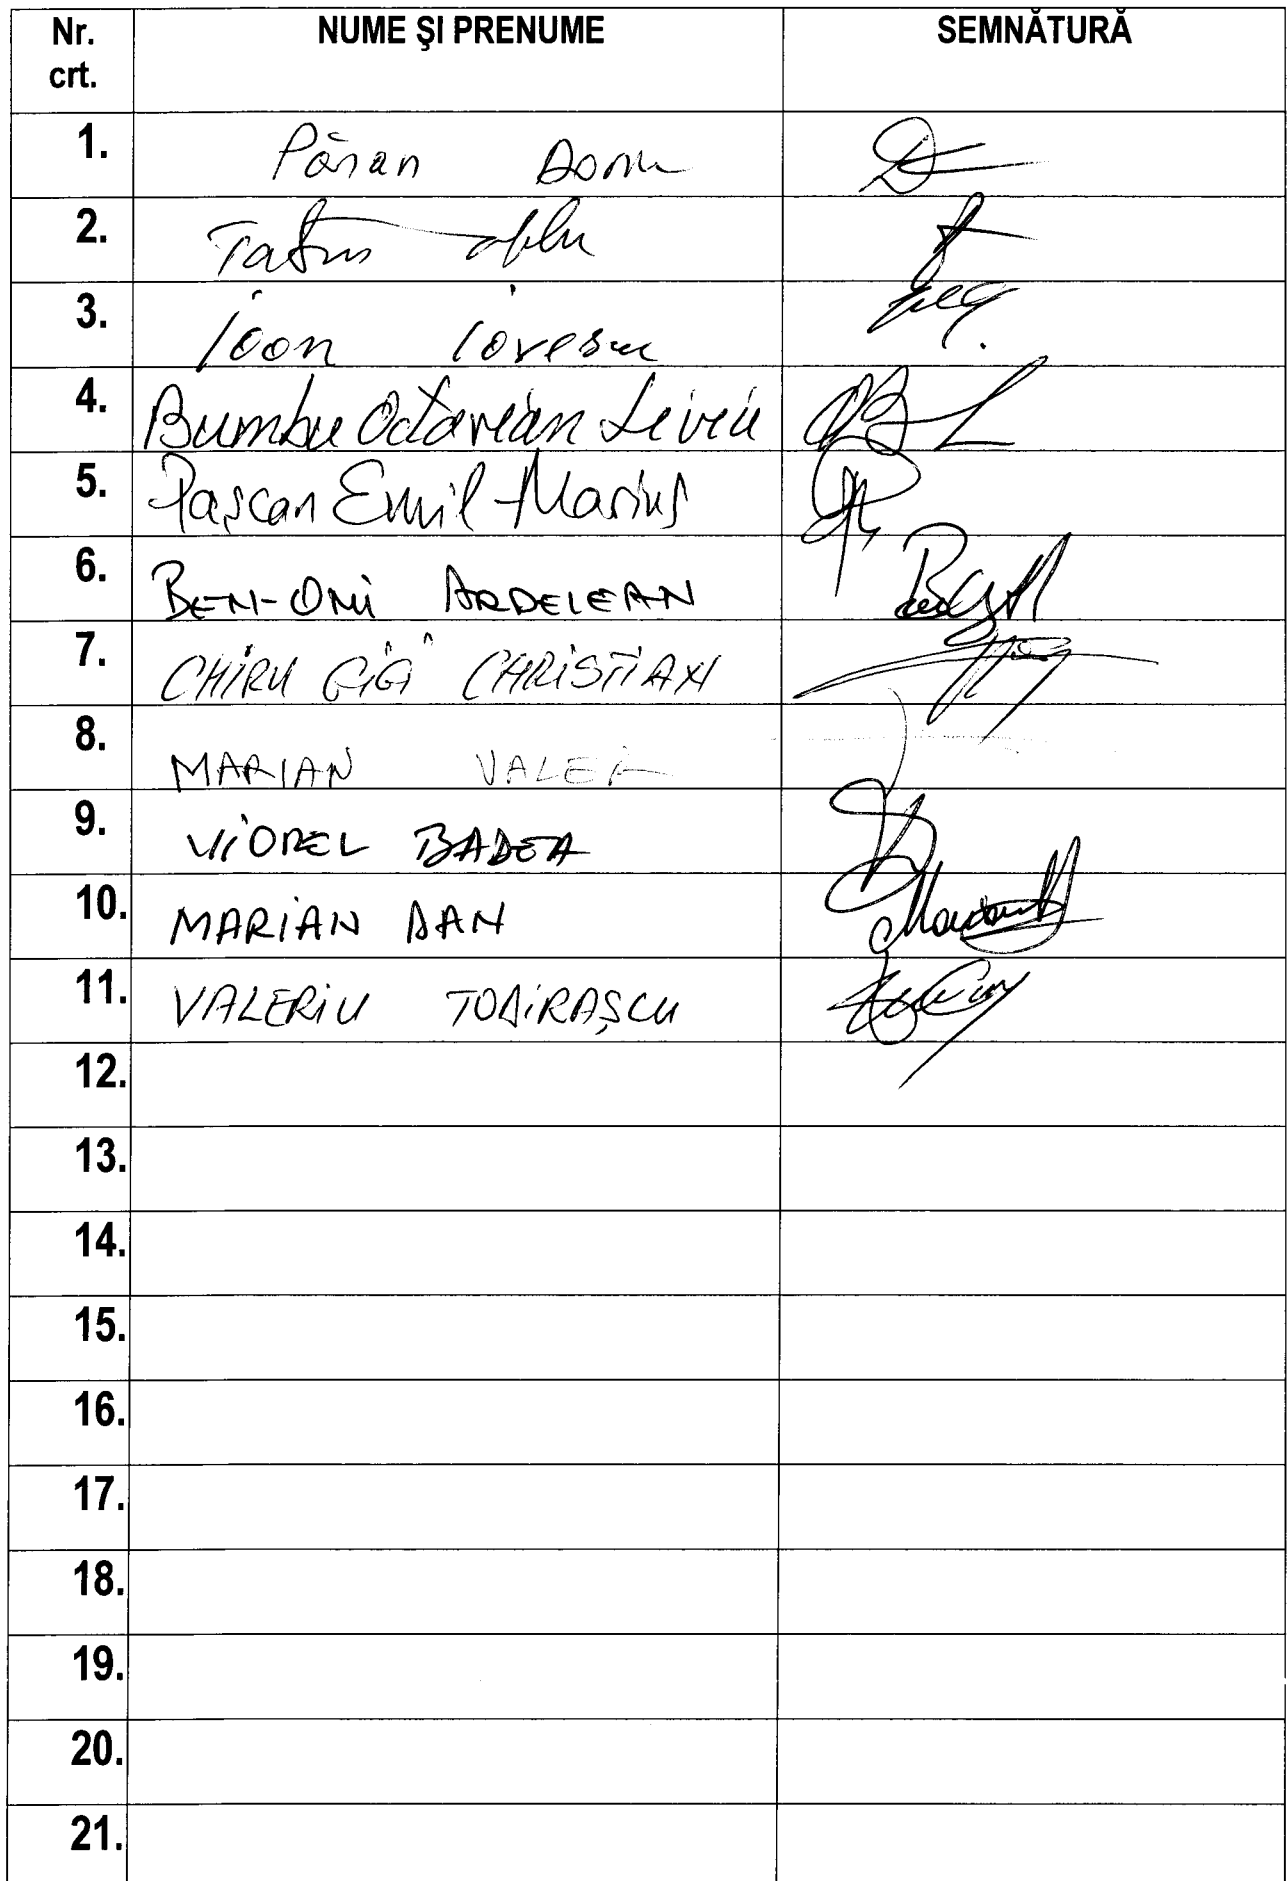 Nr. crt. NUME ŞI PRENUME SEMNĂTURĂ
1. Păran Dorin
2.
3. Ioan Iovescu
4. Bumbu Octavian Liviu
5. Paşcan Emil-Marius
6. BEN-ONI ARDELEAN
7. CHIRU GIGI CHRISTIAN
8. MARIAN VALER
9. VIOREL BADEA
10. MARIAN DAN
11. VALERIU TODIRAŞCU
12.
13.
14.
15.
16.
17.
18.
19.
20.
21.